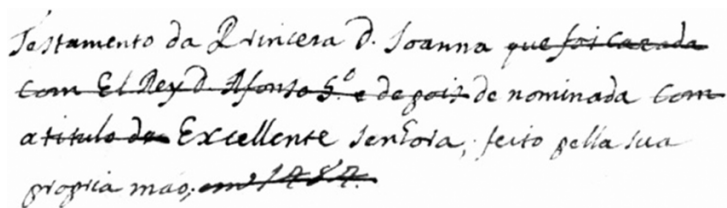 Testamento da Princesa D. Joanna que foi cazada
com El Rey D Afonso 5.º e depois de nominada com
a titulo de Excellente Senhora, feito pella sua
propria mao; em 1484.